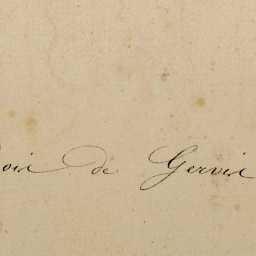 ois de Gervis